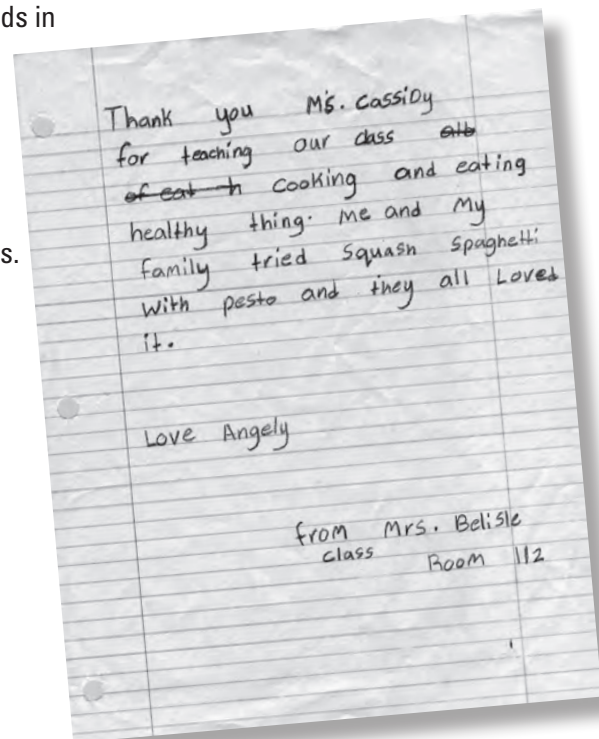 ds in
s.
Thank you Ms. CassiDy
for teaching our class alb
of eat h cooking and eating
healthy thing. Me and My
family tried Squash Spaghetti
With pesto and they all Loved
it.
Love Angely
from Mrs. Belisle
class Room 112